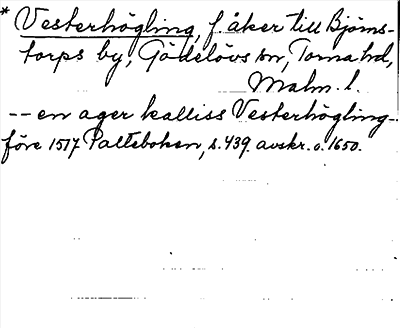 * Vesterhögling, f. åker till Björns-
torps by, Gödelövs sn, Torna hd,
Malm. l.
-- en ager kalliss Vesterhögling--
före 1517 Palteboken, s. 439. avskr. o. 1650.